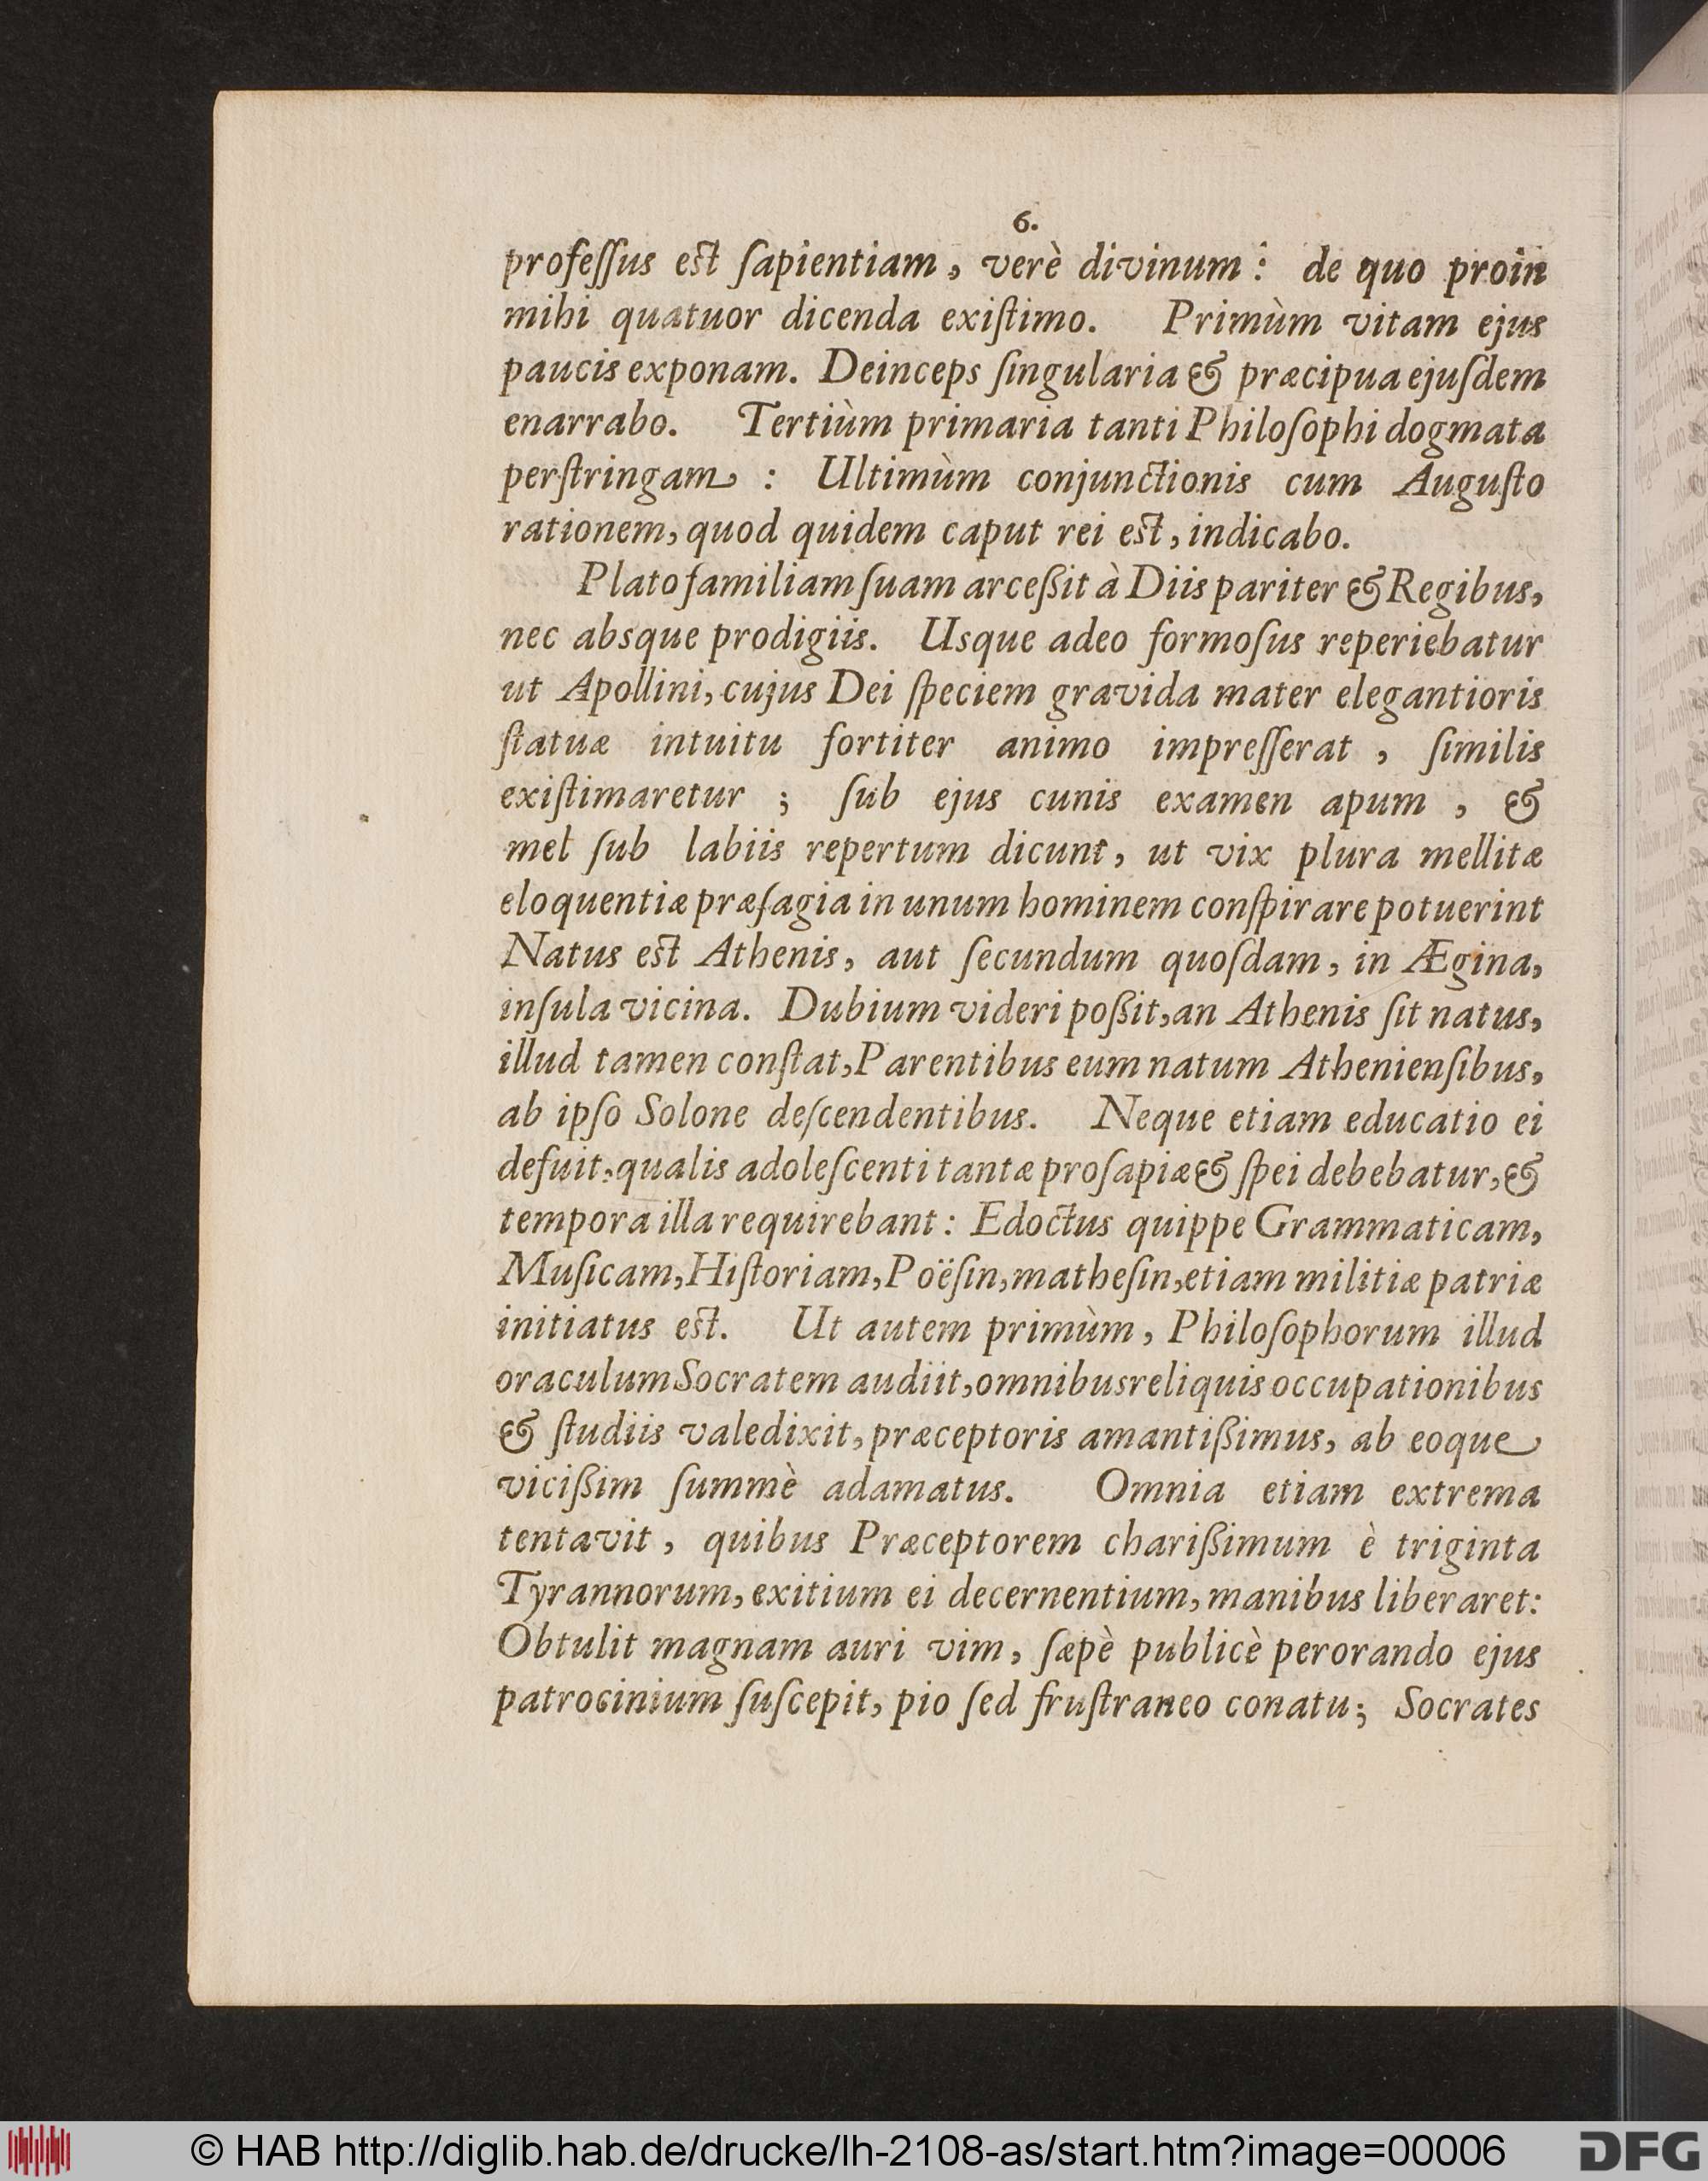 6.
profeſſus eſt ſapientiam, verè divinum: de quo proin
mihi quatuor dicenda exiſtimo. Primùm vitam ejus
paucis exponam. Deinceps ſingularia & præcipua ejuſdem
enarrabo. Tertiùm primaria tanti Philoſophi dogmata
perſtringam: Ultimùm conjunctionis cum Auguſto
rationem, quod quidem caput rei eſt, indicabo.
Plato familiam ſuam arceßit à Diis pariter & Regibus,
nec absque prodigiis. Usque adeo formoſus reperiebatur
ut Apollini, cujus Dei ſpeciem gravida mater elegantioris
ſtatuæ intuitu fortiter animo impreſſerat, ſimilis
exiſtimaretur; ſub ejus cunis examen apum, &
mel ſub labiis repertum dicunt, ut vix plura mellitæ
eloquentiæ præſagia in unum hominem conſpirare potuerint
Natus eſt Athenis, aut ſecundum quoſdam, in Ægina,
inſula vicina. Dubium videri poßit, an Athenis ſit natus,
illud tamen conſtat, Parentibus eum natum Athenienſibus,
ab ipſo Solone deſcendentibus. Neque etiam educatio ei
defuit, qualis adoleſcenti tantæ proſapiæ & ſpei debebatur, &
tempora illa requirebant: Edoctus quippe Grammaticam,
Muſicam, Hiſtoriam, Poëſin, matheſin, etiam militiæ patriæ
initiatus eſt. Ut autem primùm, Philoſophorum illud
oraculum Socratem audiit, omnibus reliquis occupationibus
& ſtudiis valedixit, præceptoris amantißimus, ab eoque
vicißim ſummè adamatus. Omnia etiam extrema
tentavit, quibus Præceptorem charißimum è triginta
Tyrannorum, exitium ei decernentium, manibus liberaret:
Obtulit magnam auri vim, ſæpè publicè perorando ejus
patrocinium ſuſcepit, pio ſed fruſtraneo conatu; Socrates
© HAB http://diglib.hab.de/drucke/lh-2108-as/start.htm?image=00006
DFG